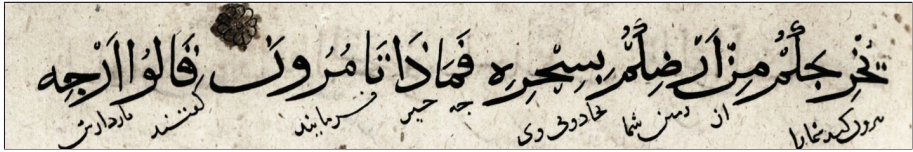 يُخْرِجَكُمْ مِنْ اَرْضِكُمْ بِسِحْرِهِ فَمَاذَا تَامُرُونَ قَالُوا اَرْجِه
بیرون کند شمارا از زمین شما بجادوئی وی جه جیز فرمایند کفتند بازدارش